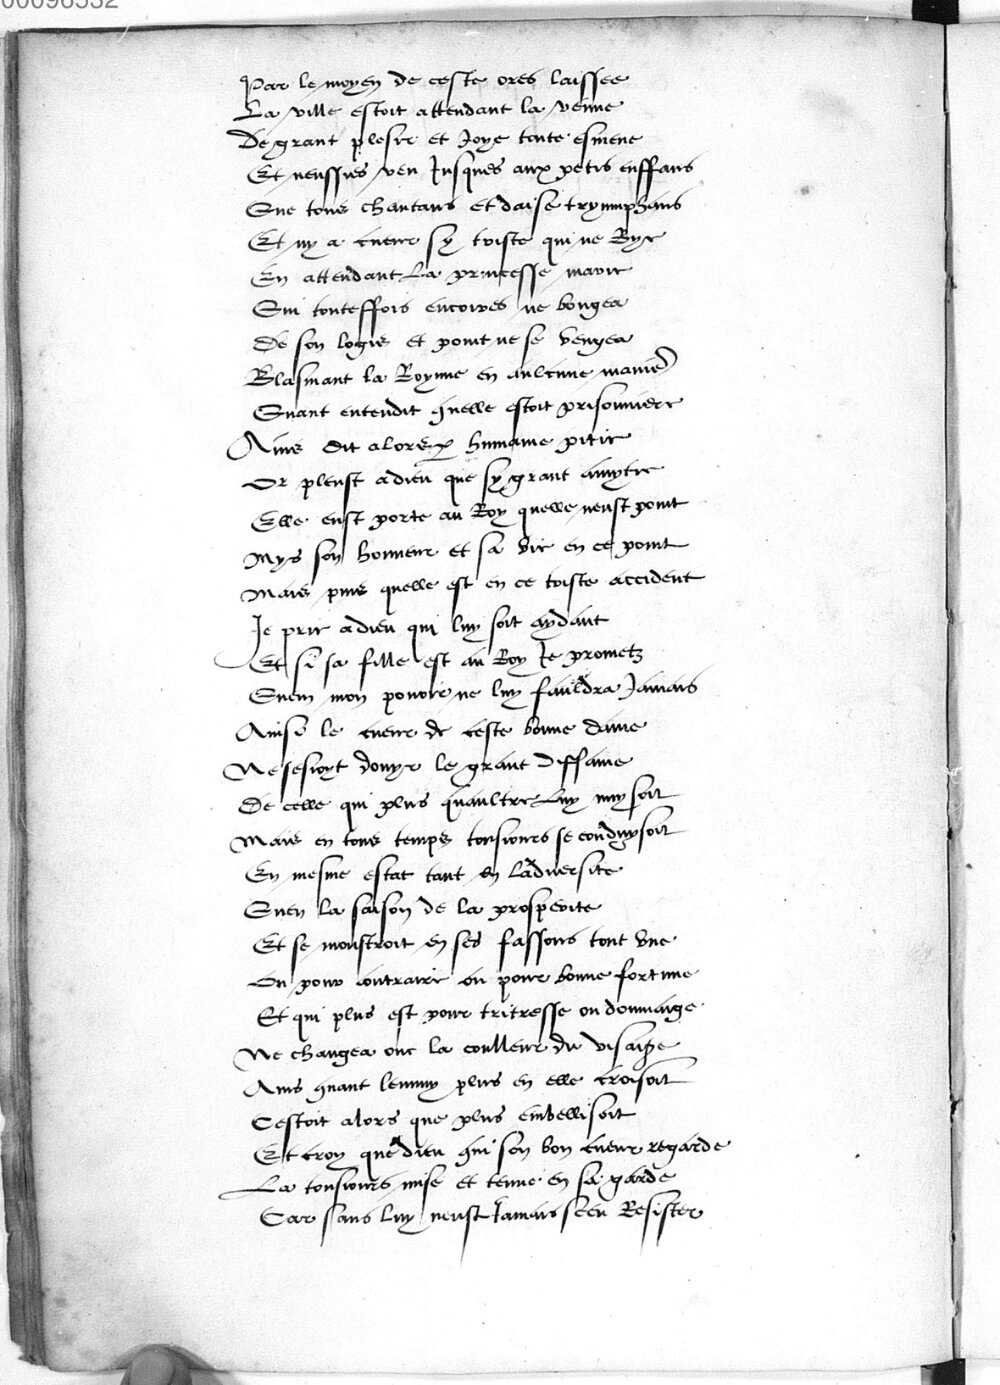 00096532
Par le moyen de ceste ores laissee
La ville estoit attendant la venue
De grant plesir et Joye toute esmeue
Et neussies veu Jusques aux petis enffans
Que tous chantans et daise tryumphans
Et ny a cueur sy triste qui ne Rye
En attendant La princesse marie
Qui touteffois encores ne bougea
De son logis et point ne se vengea
Blasmant la Royne en aulcune manie
Quant entendit quelle estoit prisonniere
Ains dit alors p humaine pitie
Or pleust adieu que sy grant amytie
Elle eust porte au Roy quelle neust point
Mys son honneur et sa vie en ce point
Mais puis quelle est en ce triste accident
Je prie adieu qui luy soit aydant
Et si sa fille est au Roy Je prometz
Quem mon pouoir ne luy fauldra Jamais
Ainsi le cueur de ceste bonne dame
Ne sesioyt douyr le grant diffame
De celle qui plus quaultre Luy nuysoit
Mais en tous temps tousiours se conduysoit
En mesme estat tant en laduersite
Quen la saison de la prosperite
Et se monstroit en ses fassons tout vne
Ou pour contraire ou pour bonne fortune
Et qui plus est pour tritresse ou dommaige
Ne changea onc la coulleur du visaige
Ains quant lennuy plus en elle croisoit
Cestoit alors que plus embellisoit
Et croy que dieu qui son bon cueur regarde
La tousiours mise et tenue en sa garde
Car sans luy neust Jamais sceu Resister